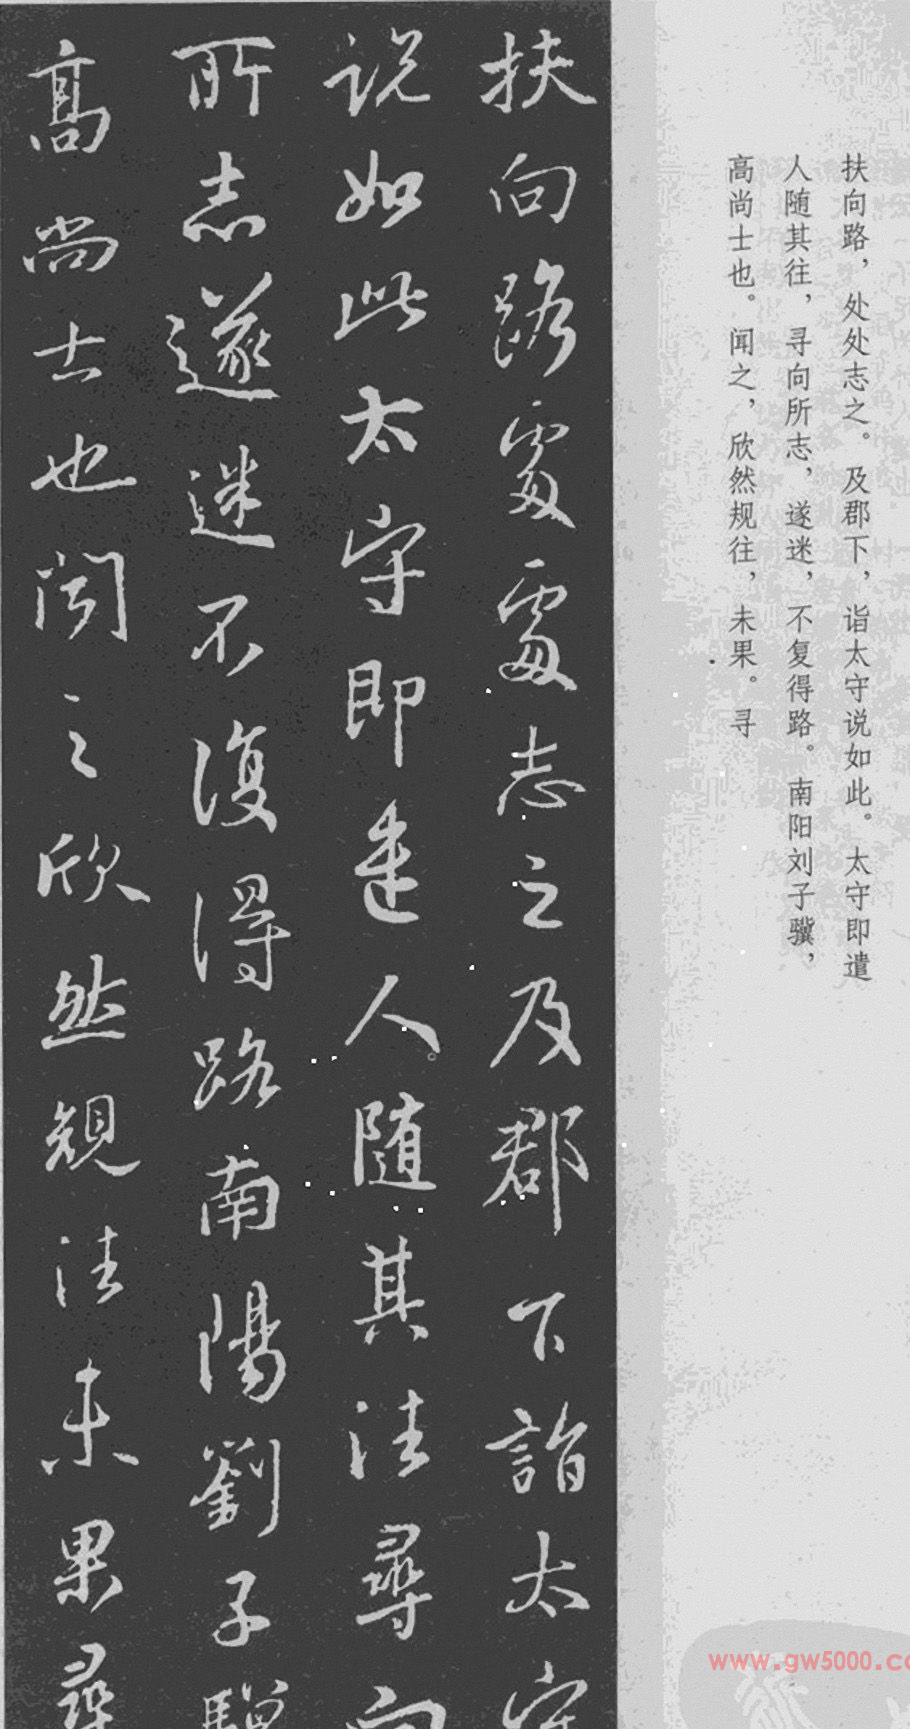 扶向路，处处志之。及郡下，诣太守说如此。太守即遣
人随其往，寻向所志，遂迷，不复得路。南阳刘子骥，
高尚士也。闻之，欣然规往，未果。寻
扶向路處處志之及郡下詣太守
說如此太守即遣人随其往尋向
所志遂迷不復得路南陽劉子驥
高尚士也聞之欣然規往未果尋
www.gw5000.co